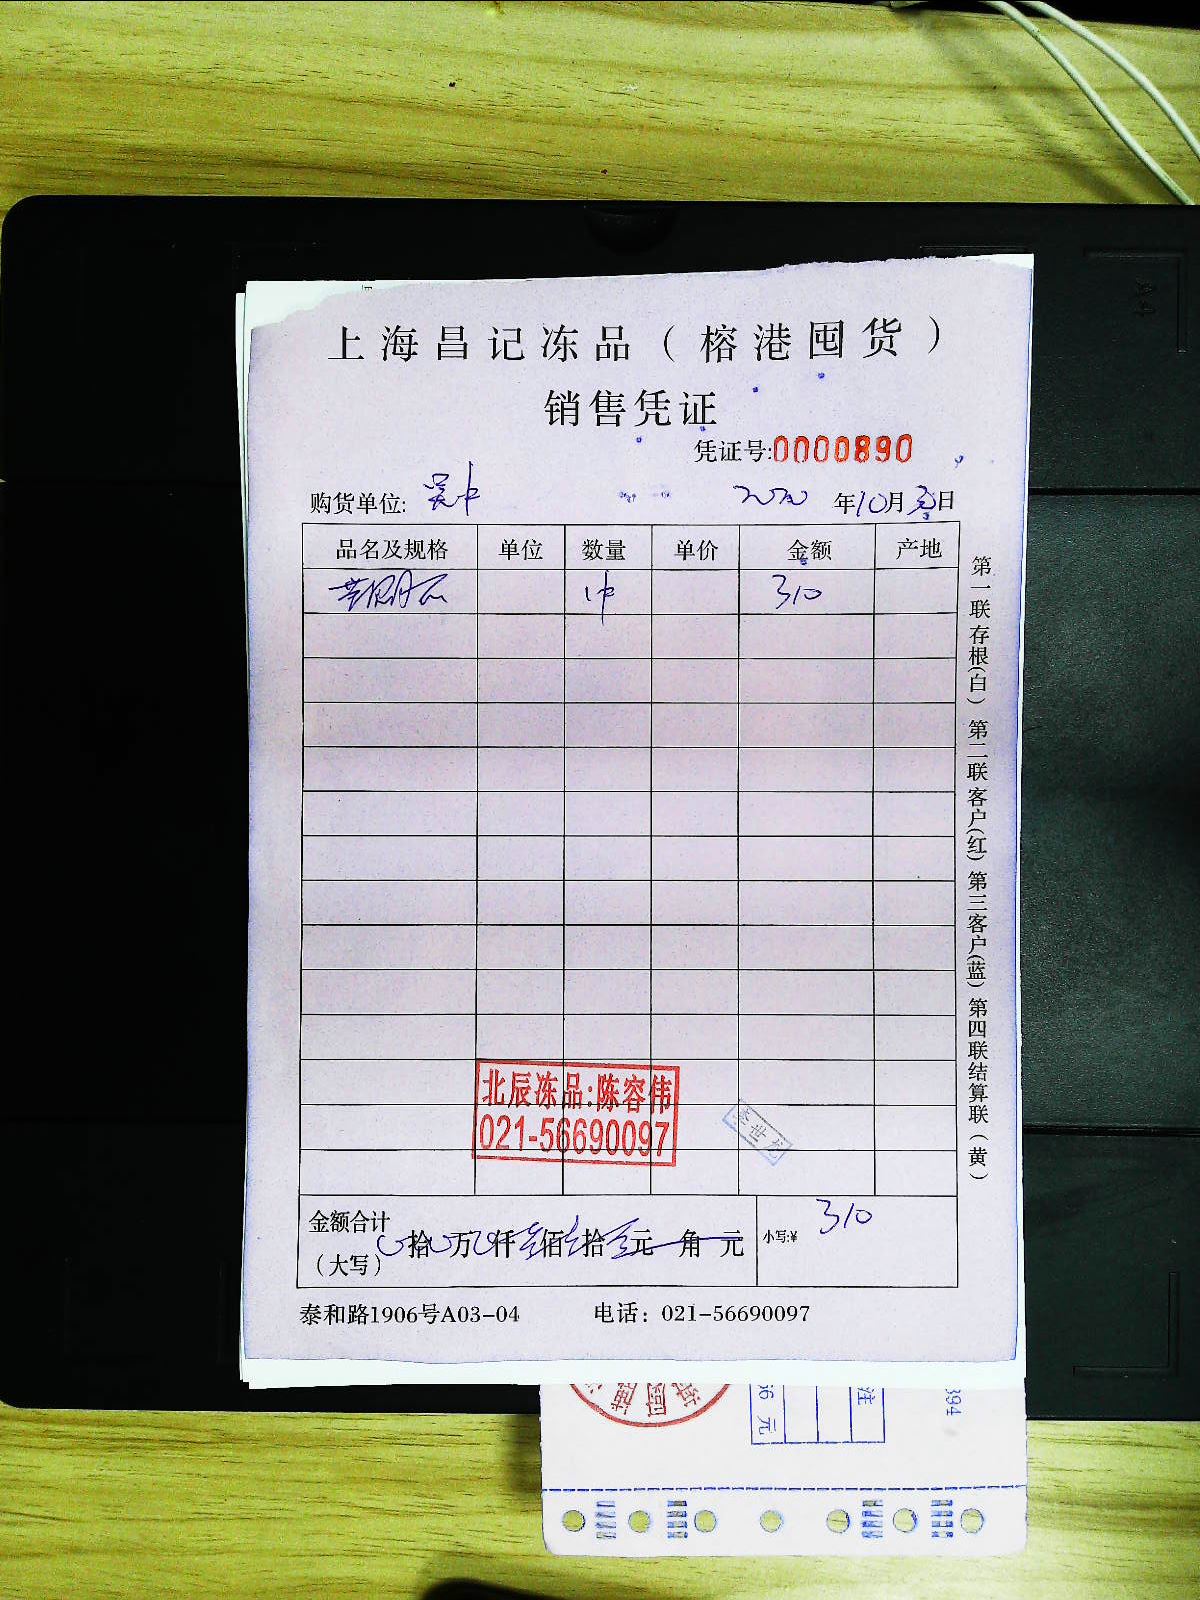 上海昌记冻品（榕港囤货）
销售凭证
凭证号:0000890
购货单位: 吴中 2020 年10月 日
品名及规格 单位 数量 单价 金额 产地
1件 310
第一联存根(白) 第二联客户(红) 第三客户(蓝) 第四联结算联(黄)
北辰冻品:陈容伟
021-56690097
圣世龙
金额合计
(大写) 拾 万 仟 佰 拾 元 角 元 小写:¥ 310
泰和路1906号A03-04 电话: 021-56690097
注
元
394